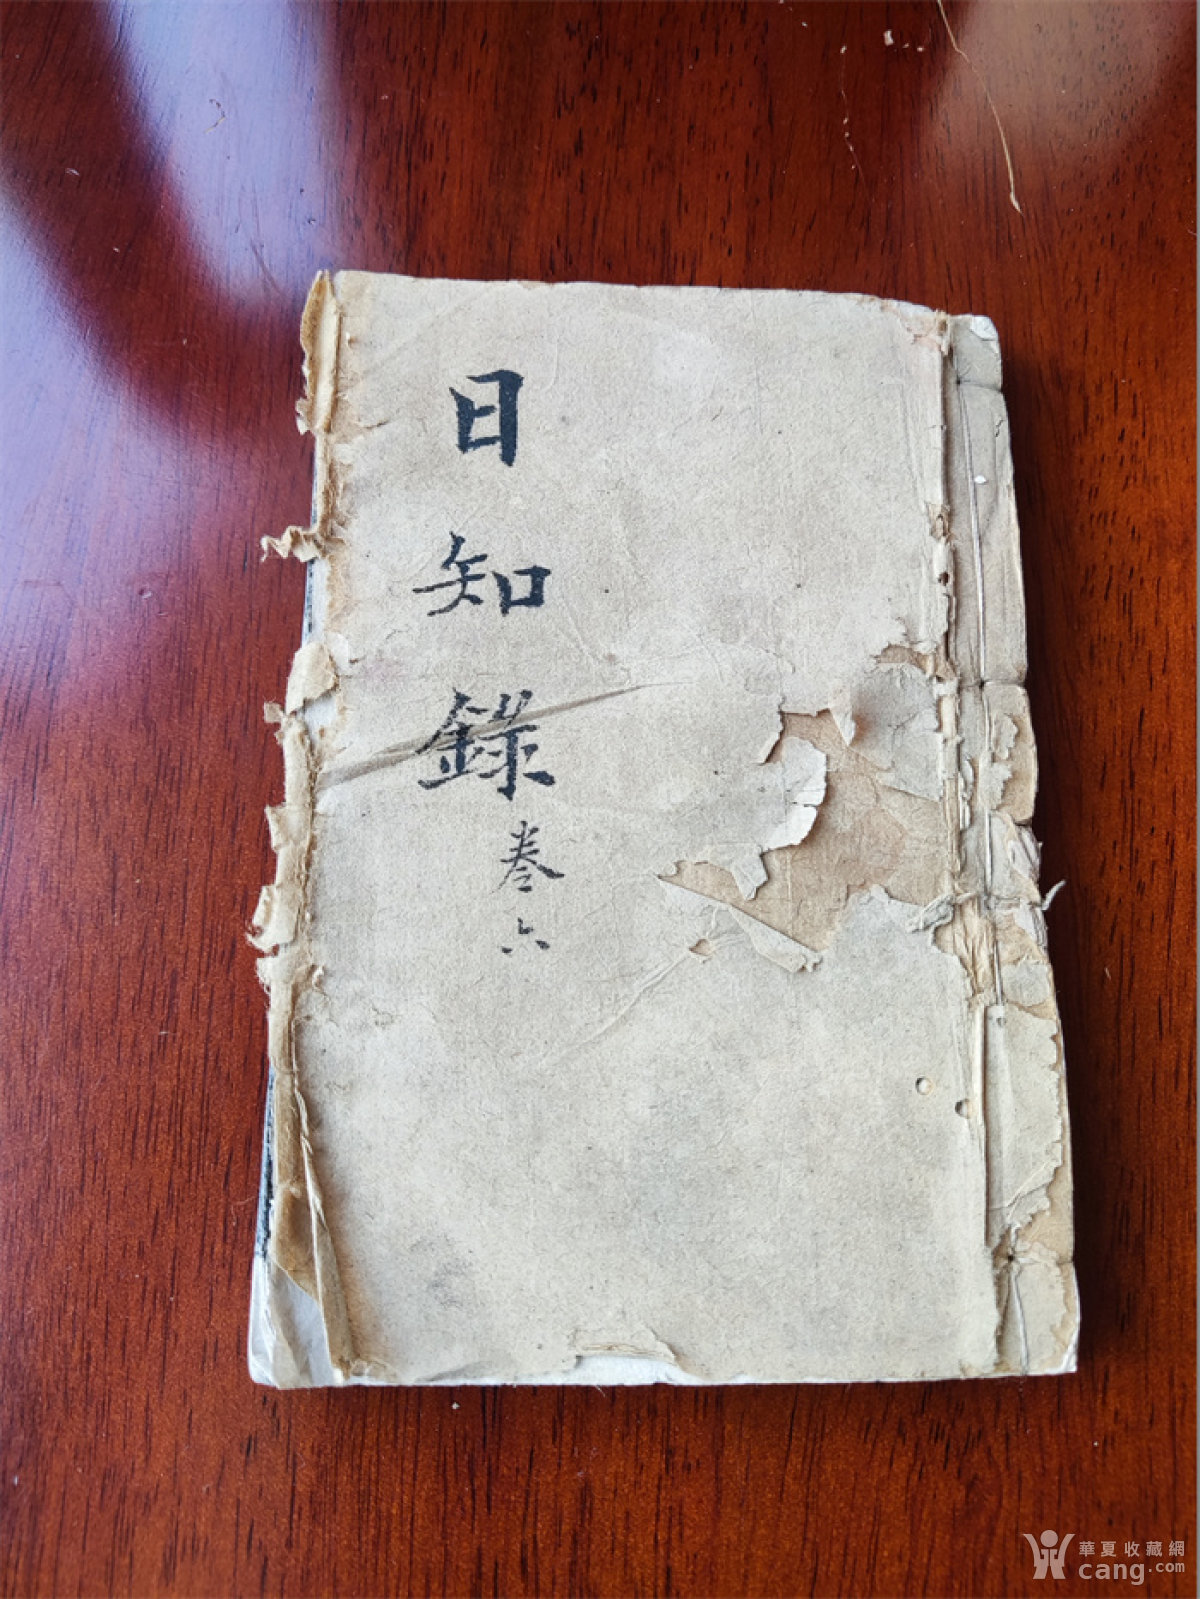 日知錄
卷六
華夏收藏網
cang.com